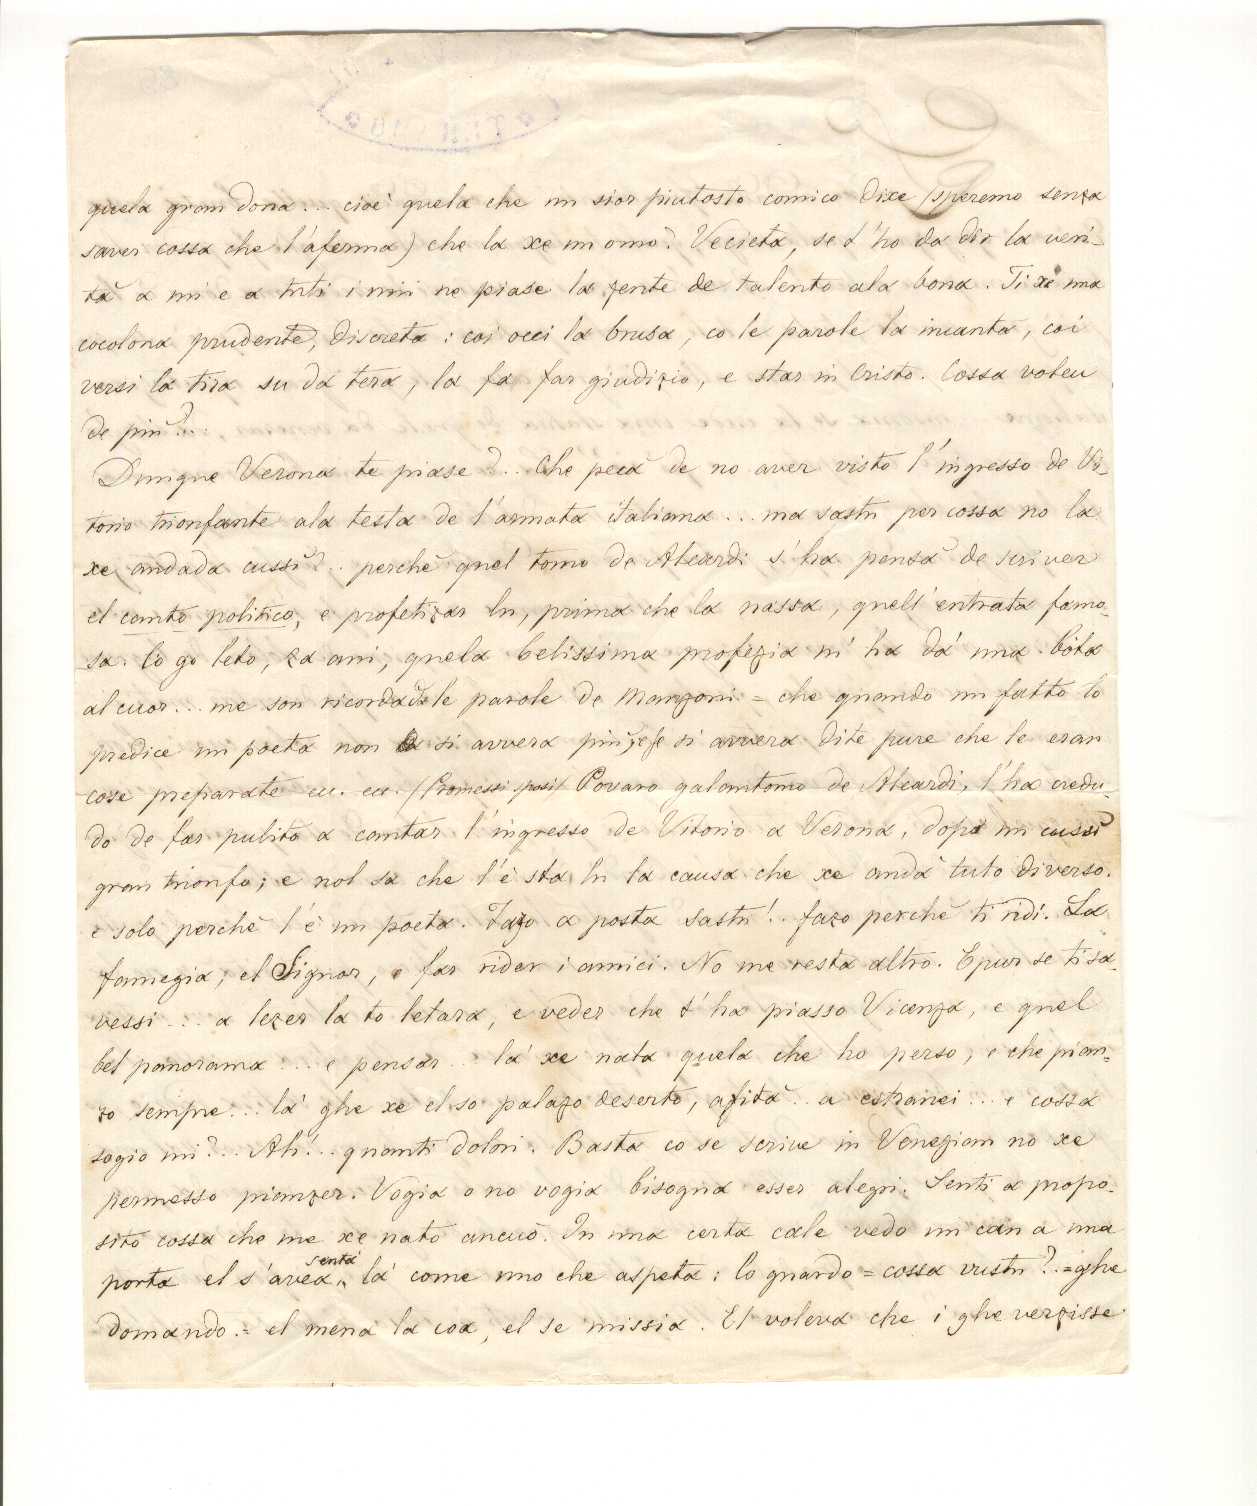 quela gran dona... cioè quela che un sior piutosto comico dixe (speremo senza
saver cossa che l'aferma) che la xe un omo? Vecieta, se t'ho da dir la veri-
tà a mi e a tuti i mii ne piase la zente de talento ala bona. Ti xe una
cocolona prudente, discreta: coi occi la brusa, co le parole la incanta, coi
versi la tira su da tera, la fa far giudizio, e star in Cristo. Cossa voleu
de più?...
Dunque Verona te piase?.. Che pecà de no aver visto l'ingresso de Vi-
torio trionfante ala testa de l'armata italiana... ma sastu per cossa no la
xe andada cussì?.. perchè quel tomo de Aleardi s'ha pensà de scriver
el canto politico, e profetizar lu, prima che la nassa, quell'entrata famo-
sa. Co go leto, za ani, quela belissima profezia m'ha dà una bota
al cuor... me son ricordada le parole de Manzoni = che quando un fatto lo
predice un poeta non si avvera più, e se si avvera dite pure che le eran
cose preparate ec. ec. (Promessi sposi) Povaro galantomo de Aleardi, l'ha credu-
do de far pulito a cantar l'ingresso de Vitorio a Verona, dopo un cussì
gran trionfo; e nol sa che l'è sta lu la causa che xe andà tuto diverso.
e solo perchè l'è un poeta. Fazo a posta sastu!.. fazo perchè ti ridi. La
famegia, el Signor, e far rider i amici. No me resta altro. Epur se ti sa-
vessi... a lezer la to letara, e veder che t'ha piasso Vicenza, e quel
bel panorama... e pensar... là xe nata quela che ho perso, e che pian-
zo sempre... là ghe xe el so palazo deserto, afità.. a estranei... e cossa
sogio mi?... Ah!.. quanti dolori. Basta co se scrive in Venezian no xe
permesso pianzer. Vogia o no vogia bisogna esser alegri. Senti a propo-
sito cossa che me xe nato ancuò. In una certa cale vedo un can a una
porta el s'avea sentà là come uno che aspeta: lo guardo = cossa vustu?.= ghe
domando.= el mena la coa, el se missia. El voleva che i ghe verzisse